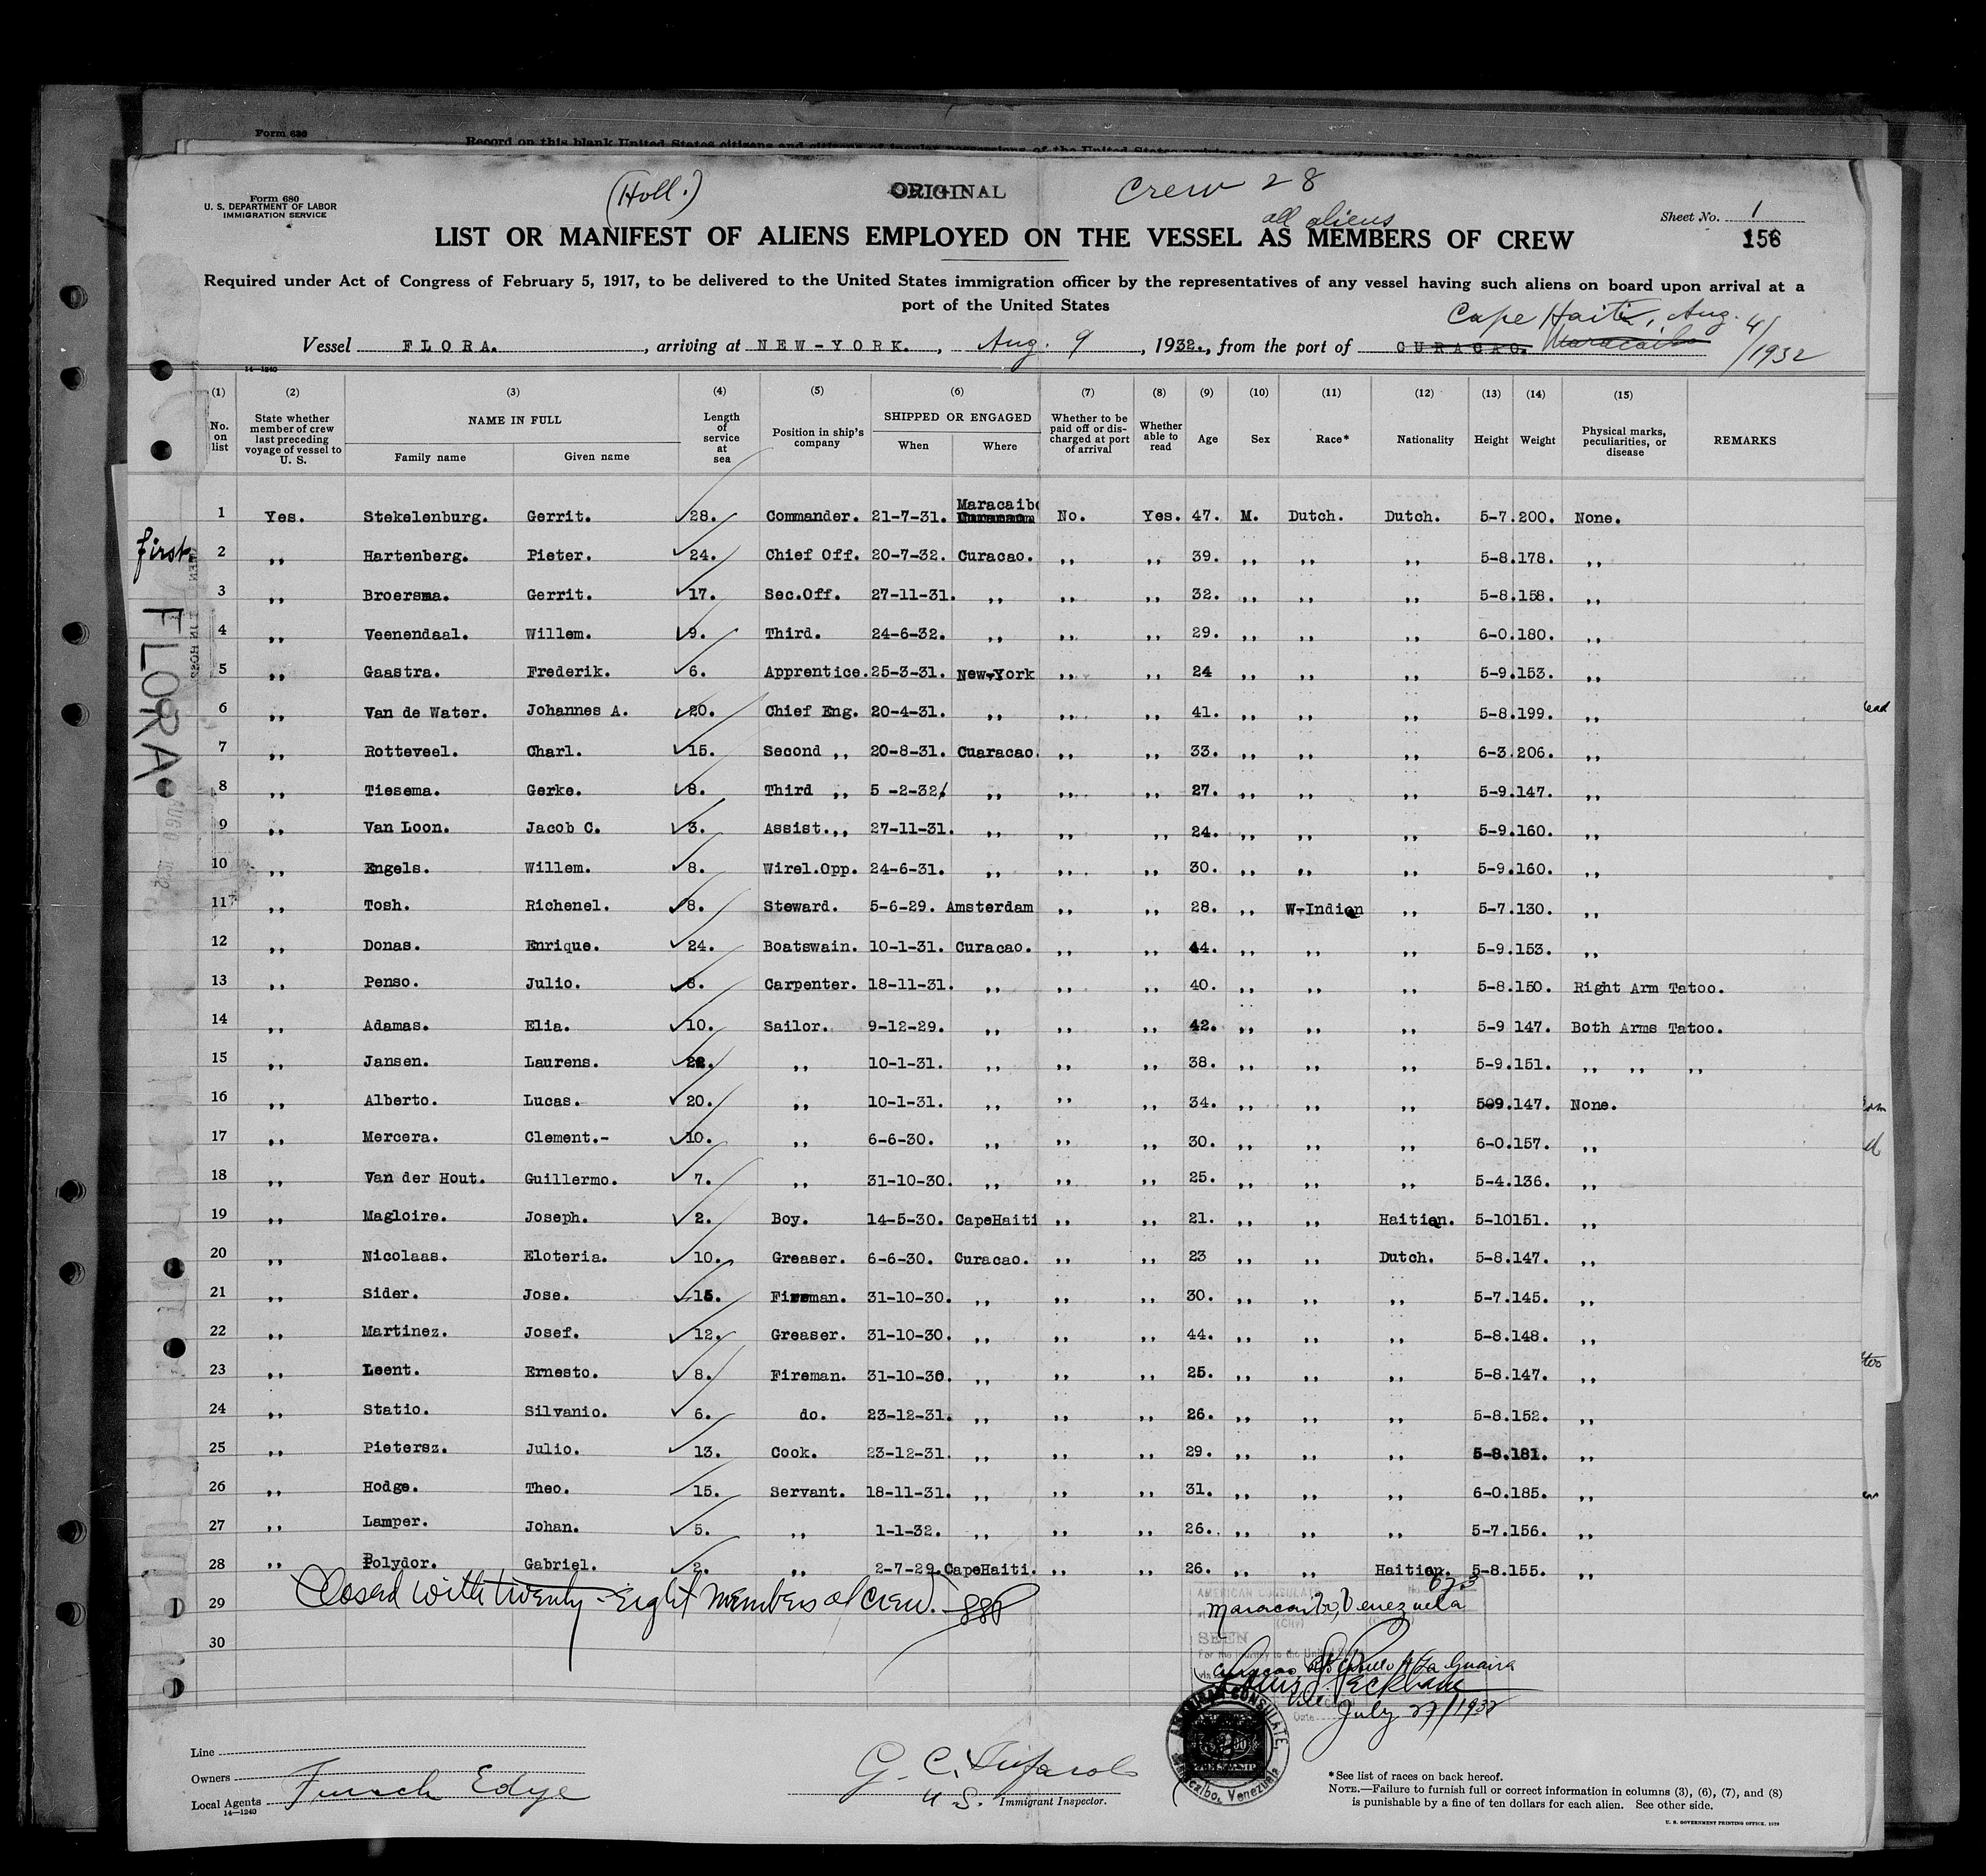 Form 630
Record on this blank United States citizens and citizens of insular possessions of the United States
Form 680
U. S. DEPARTMENT OF LABOR
IMMIGRATION SERVICE
(Holl.)
ORIGINAL
Crew 28
all aliens
Sheet No. 1
156
LIST OR MANIFEST OF ALIENS EMPLOYED ON THE VESSEL AS MEMBERS OF CREW
Required under Act of Congress of February 5, 1917, to be delivered to the United States immigration officer by the representatives of any vessel having such aliens on board upon arrival at a
port of the United States
Cape Haiti, Aug. 4/1932
Vessel FLORA. , arriving at NEW-YORK. , Aug. 9 , 1932., from the port of CURACAO. Maracaibo
14—1240
(1) (2) (3) (4) (5) (6) (7) (8) (9) (10) (11) (12) (13) (14) (15)
No. on list | State whether member of crew last preceding voyage of vessel to U. S. | NAME IN FULL Family name Given name | Length of service at sea | Position in ship's company | SHIPPED OR ENGAGED When Where | Whether to be paid off or discharged at port of arrival | Whether able to read | Age | Sex | Race* | Nationality | Height | Weight | Physical marks, peculiarities, or disease | REMARKS
1 Yes. Stekelenburg. Gerrit. 28. Commander. 21-7-31. Maracaibo Curacao No. Yes. 47. M. Dutch. Dutch. 5-7. 200. None.
first
2 ,, Hartenberg. Pieter. 24. Chief Off. 20-7-32. Curacao. ,, ,, 39. ,, ,, ,, 5-8. 178. ,,
3 ,, Broersma. Gerrit. 17. Sec.Off. 27-11-31. ,, ,, ,, 32. ,, ,, ,, 5-8. 158. ,,
4 ,, Veenendaal. Willem. 9. Third. 24-6-32. ,, ,, ,, 29. ,, ,, ,, 6-0. 180. ,,
FLORA
5 ,, Gaastra. Frederik. 6. Apprentice. 25-3-31. New-York ,, ,, 24 ,, ,, ,, 5-9. 153. ,,
6 ,, Van de Water. Johannes A. 20. Chief Eng. 20-4-31. ,, ,, ,, 41. ,, ,, ,, 5-8. 199. ,,
7 ,, Rotteveel. Charl. 15. Second ,, 20-8-31. Cuaracao. ,, ,, 33. ,, ,, ,, 6-3. 206. ,,
8 ,, Tiesema. Gerke. 8. Third ,, 5 -2-32. ,, ,, ,, 27. ,, ,, ,, 5-9. 147. ,,
9 ,, Van Loon. Jacob C. 3. Assist.,, 27-11-31. ,, ,, ,, 24. ,, ,, ,, 5-9. 160. ,,
10 ,, Engels. Willem. 8. Wirel.Opp. 24-6-31. ,, ,, ,, 30. ,, ,, ,, 5-9. 160. ,,
11 ,, Tosh. Richenel. 8. Steward. 5-6-29. Amsterdam ,, ,, 28. ,, W-Indien ,, 5-7. 130. ,,
12 ,, Donas. Enrique. 24. Boatswain. 10-1-31. Curacao. ,, ,, 44. ,, ,, ,, 5-9. 153. ,,
13 ,, Penso. Julio. 8. Carpenter. 18-11-31. ,, ,, ,, 40. ,, ,, ,, 5-8. 150. Right Arm Tatoo.
14 ,, Adamas. Elia. 10. Sailor. 9-12-29. ,, ,, ,, 42. ,, ,, ,, 5-9 147. Both Arms Tatoo.
15 ,, Jansen. Laurens. 22. ,, 10-1-31. ,, ,, ,, 38. ,, ,, ,, 5-9. 151. ,, ,, ,,
16 ,, Alberto. Lucas. 20. ,, 10-1-31. ,, ,, ,, 34. ,, ,, ,, 5-9. 147. None.
17 ,, Mercera. Clement.- 10. ,, 6-6-30. ,, ,, ,, 30. ,, ,, ,, 6-0. 157. ,,
18 ,, Van der Hout. Guillermo. 7. ,, 31-10-30. ,, ,, ,, 25. ,, ,, ,, 5-4. 136. ,,
19 ,, Magloire. Joseph. 2. Boy. 14-5-30. CapeHaiti ,, ,, 21. ,, ,, Haitien. 5-10 151. ,,
20 ,, Nicolaas. Eloteria. 10. Greaser. 6-6-30. Curacao. ,, ,, 23 ,, ,, Dutch. 5-8. 147. ,,
21 ,, Sider. Jose. 15. Fireman. 31-10-30. ,, ,, ,, 30. ,, ,, ,, 5-7. 145. ,,
22 ,, Martinez. Josef. 12. Greaser. 31-10-30. ,, ,, ,, 44. ,, ,, ,, 5-8. 148. ,,
23 ,, Leent. Ernesto. 8. Fireman. 31-10-30. ,, ,, ,, 25. ,, ,, ,, 5-8. 147. ,,
24 ,, Statio. Silvanio. 6. do. 23-12-31. ,, ,, ,, 26. ,, ,, ,, 5-8. 152. ,,
25 ,, Pietersz. Julio. 13. Cook. 23-12-31. ,, ,, ,, 29. ,, ,, ,, 5-8. 181. ,,
26 ,, Hodge. Theo. 15. Servant. 18-11-31. ,, ,, ,, 31. ,, ,, ,, 6-0. 185. ,,
27 ,, Lamper. Johan. 5. ,, 1-1-32. ,, ,, ,, 26. ,, ,, ,, 5-7. 156. ,,
28 ,, Polydor. Gabriel. 2. ,, 2-7-29. CapeHaiti. ,, ,, 26. ,, ,, Haitien. 5-8. 155. ,,
Closed with twenty-eight members of crew.
29
30
AMERICAN CONSULATE
No. 673
Maracaibo, Venezuela
(City)
SEEN
For the journey to the United States
Curacao, Pto Cabello & La Guaira
Date July 27/1932
AMERICAN CONSULATE
Maracaibo, Venezuela
Line
Owners
Local Agents Funch Edye
14—1240
U. S. Immigrant Inspector.
*See list of races on back hereof.
NOTE.—Failure to furnish full or correct information in columns (3), (6), (7), and (8)
is punishable by a fine of ten dollars for each alien. See other side.
U. S. GOVERNMENT PRINTING OFFICE, 1929